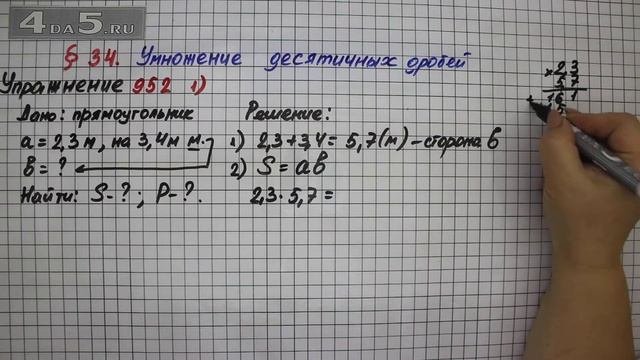 4DA5.RU
§ 34. Умножение десятичных дробей
Упражнение 952 1)
Дано: прямоугольник
a = 2,3 м, на 3,4 м м.
в = ?
Найти: S - ? ; P - ?.
Решение:
1) 2,3 + 3,4 = 5,7 (м) – сторона в
2) S = aв
2,3 · 5,7 =
× 2 3
5 7
1 6 1